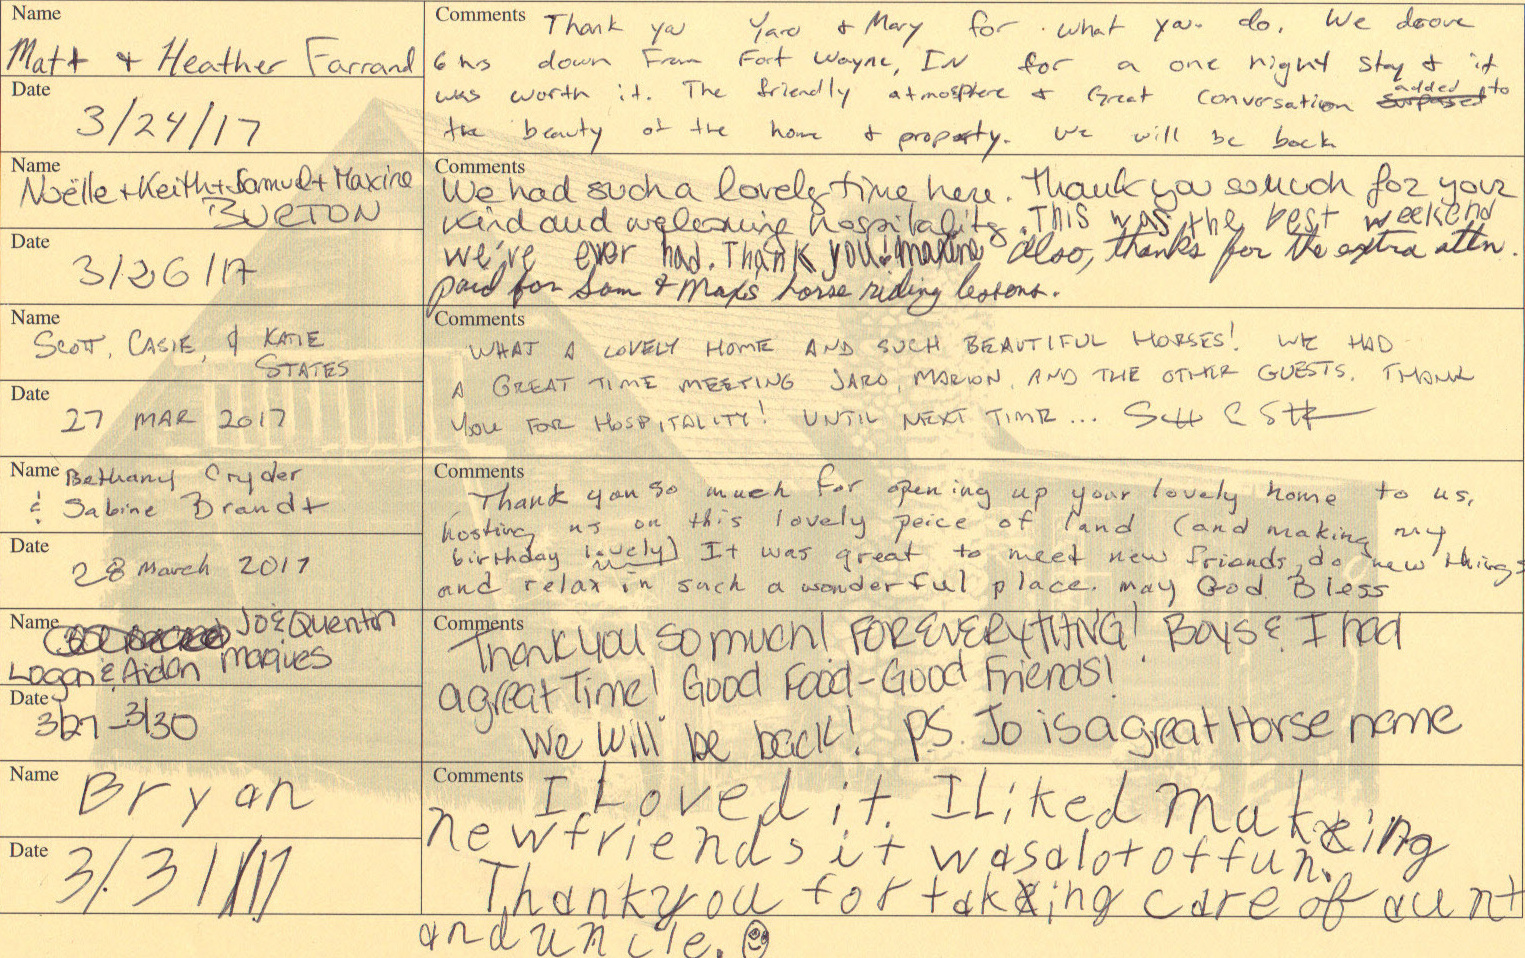 Name
Matt & Heather Farrand
Date
3/24/17
Comments
Thank you Yaro & Mary for what you do. We drove
6 hrs down from Fort Wayne, IN for a one night stay & it
was worth it. The friendly atmosphere & Great conversation added to
the beauty of the home & property. We will be back
Name
Noëlle + Keith + Samuel + Maxine
BURTON
Date
3/26/17
Comments
We had such a lovely time here. Thank you so much for your
kind and welcoming hospitality. This was the best weekend
we've ever had. Thank you! maxine Also, thanks for the extra attn.
paid for Sam & Max's horse riding lessons.
Name
SCOTT, CASIE, & KATIE
STATES
Date
27 MAR 2017
Comments
WHAT A LOVELY HOME AND SUCH BEAUTIFUL HORSES! WE HAD
A GREAT TIME MEETING JARO, MARION, AND THE OTHER GUESTS. THANK
YOU FOR HOSPITALITY! UNTIL NEXT TIME...
Name
Bethany Cryder
& Sabine Brandt
Date
28 March 2017
Comments
Thank you so much for opening up your lovely home to us,
hosting us on this lovely peice of land (and making my
birthday lovely) It was great to meet new friends, do new things
and relax in such a wonderful place. may God Bless
Name
Jo & Quentin
Logan & Aidan Marques
Date
3/27-3/30
Comments
Thank you so much! FOR EVERYTHING! Boys & I had
a great Time! Good Food-Good Friends!
We Will be back! P.S. Jo is a great Horse name
Name
Bryan
Date
3/31/17
Comments
I Loved it. I Liked Making
new friends it was a lot of fun.
Thank you for taking care of aunt
and uncle.